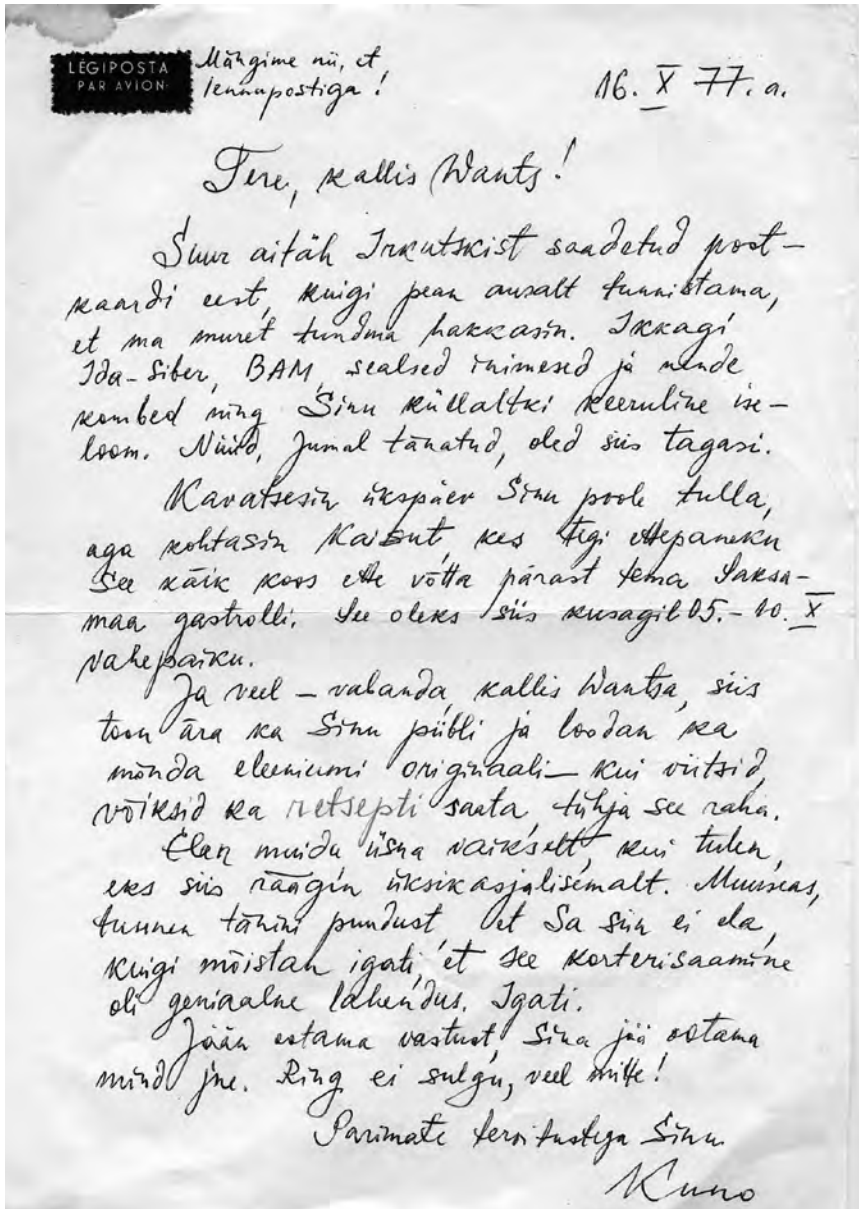 LÉGIPOSTA
PAR AVION
Mängime nii, et
lennupostiga!
16. X 77. a.
Tere, kallis Wants!
Suur aitäh Irkutskist saadetud post-
kaardi eest, kuigi pean ausalt tunnistama,
et ma muret tundma hakkasin. Ikkagi
Ida-Siber, BAM, sealsed inimesed ja nende
kombed ning Sinu küllaltki keeruline ise-
loom. Nüüd, jumal tänatud, oled siis tagasi.
Kavatsesin ükspäev Sinu poole tulla,
aga kohtasin Kaisut, kes tegi ettepaneku
see käik koos ette võtta pärast tema Saksa-
maa gastrolli. See oleks siis kusagil 05.-10. X
vahepaiku.
Ja veel – vabanda, kallis Wantsa, siis
toon ära ka Sinu piibli ja loodan ka
mõnda eleeniumi originaali – kui viitsid,
võiksid ka retsepti saata, tühja see raha.
Elan muidu üsna vaikselt, kui tulen,
eks siis räägin üksikasjalisemalt. Muuseas,
tunnen tänini puudust, et Sa siin ei ela,
kuigi mõistan igati, et see korterisaamine
oli geniaalne lahendus. Igati.
Jään ootama vastust, Sina jää ootama
mind jne. Ring ei sulgu, veel mitte!
Parimate tervitustega Sinu
Kuno